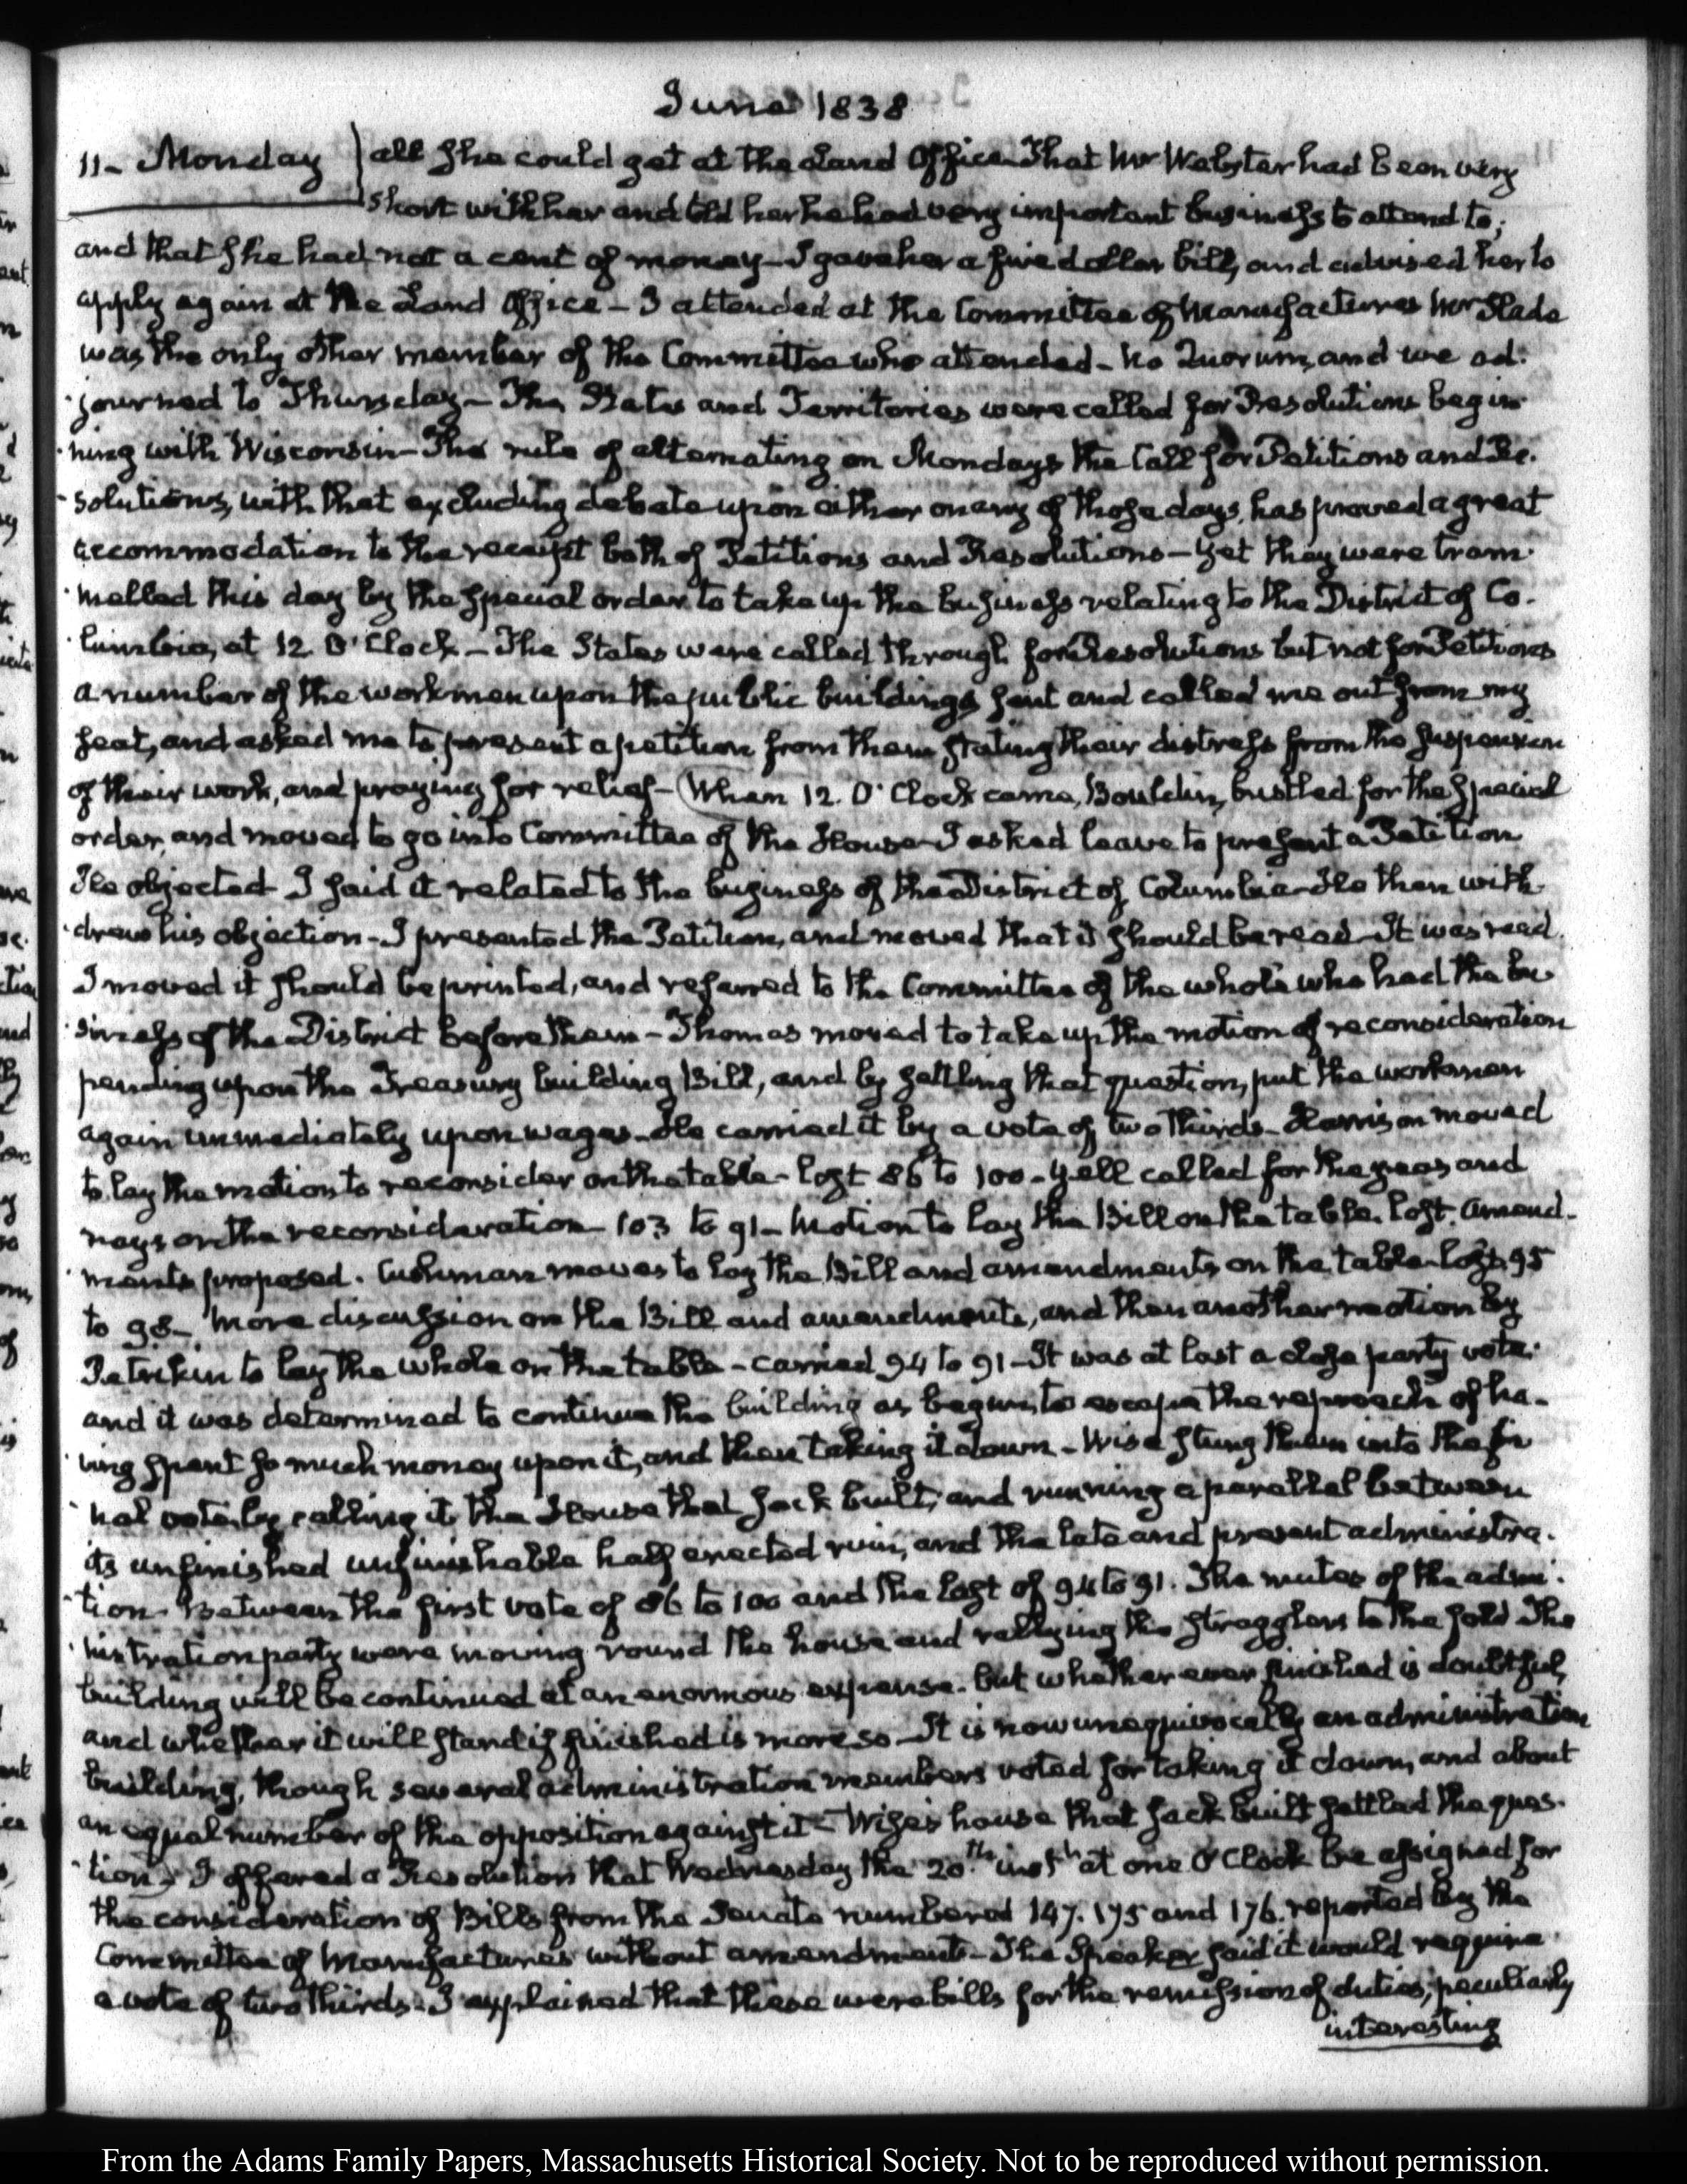 June 1838
11- Monday
all she could get at the Land Office That Mr Webster had been very
short with her and told her he had very important business to attend to;
and that she had not a cent of money- I gave her a five dollar bill, and advised her to
apply again at the Land Office - I attended at the Committee of Manufactures Mr Slade
was the only other member of the Committee who attended - No Quorum, and we ad-
journed to Thursday - The States and Territories were called for Resolutions begin
ning with Wisconsin - The rule of alternating on Mondays the Call for Petitions and Re-
solutions, with that excluding debate upon either on any of those days, has proved a great
accommodation to the receipt both of Petitions and Resolutions - Yet they were tram-
melled this day by the special order to take up the business relating to the District of Co-
lumbia, at 12 O'Clock - The States were called through for Resolutions but not for Petitions
a number of the workmen upon the public buildings sent and called me out from my
seat, and asked me to present a petition from them stating their distress from the suspension
of their work, and praying for relief - When 12. O'Clock came, Bouldin, bustled for the special
order, and moved to go into Committee of the House - I asked leave to present a Petition
He objected I said it related to the business of the District of Columbia - He then with-
drew his objection - I presented the Petition, and moved that it should be read - It was read.
I moved it should be printed, and referred to the Committee of the whole who had the bu-
siness of the District before them - Thomas moved to take up the motion of reconsideration
pending upon the Treasury building Bill, and by settling that question, put the workmen
again immediately upon wages - He carried it by a vote of two thirds - Harrison moved
to lay the motion to reconsider on the table - lost 86 to 100 - Yell called for the yeas and
nays on the reconsideration - 103 to 91 - Motion to lay the Bill on the table. lost. Amend-
ments proposed. Cushman moves to lay the Bill and amendments on the table - lost 95
to 98 - More discussion on the Bill and amendments, and then another motion by
Petrikin to lay the whole on the table - carried 94 to 91 - It was at last a close party vote:
and it was determined to continue the building as begun, to escape the reproach of ha-
ving spent so much money upon it, and then taking it down - Wise stung them into the fi
nal vote, by calling it the House that Jack built, and running a parallel between
its unfinished unfinishable half erected ruin, and the late and present administra-
tion - Between the first vote of 86 to 100 and the last of 94 to 91. The mutes of the admi-
nistration party were moving round the house and rallying the stragglers to the fold The
building will be continued at an enormous expense. but whether ever finished is doubtful,
and whether it will stand if finished is more so - It is now unequivocally an administration
building, though several administration members voted for taking it down, and about
an equal number of the opposition against it - Wise's house that Jack built settled the ques-
tion. I offered a Resolution that Wednesday the 20th inst at one O'Clock be assigned for
the consideration of Bills from the Senate numbered 147. 175 and 176. reported by the
Committee of Manufactures without amendment - The Speaker said it would require
a vote of two thirds - I explained that these were bills for the remission of duties, peculiarly
interesting
From the Adams Family Papers, Massachusetts Historical Society. Not to be reproduced without permission.